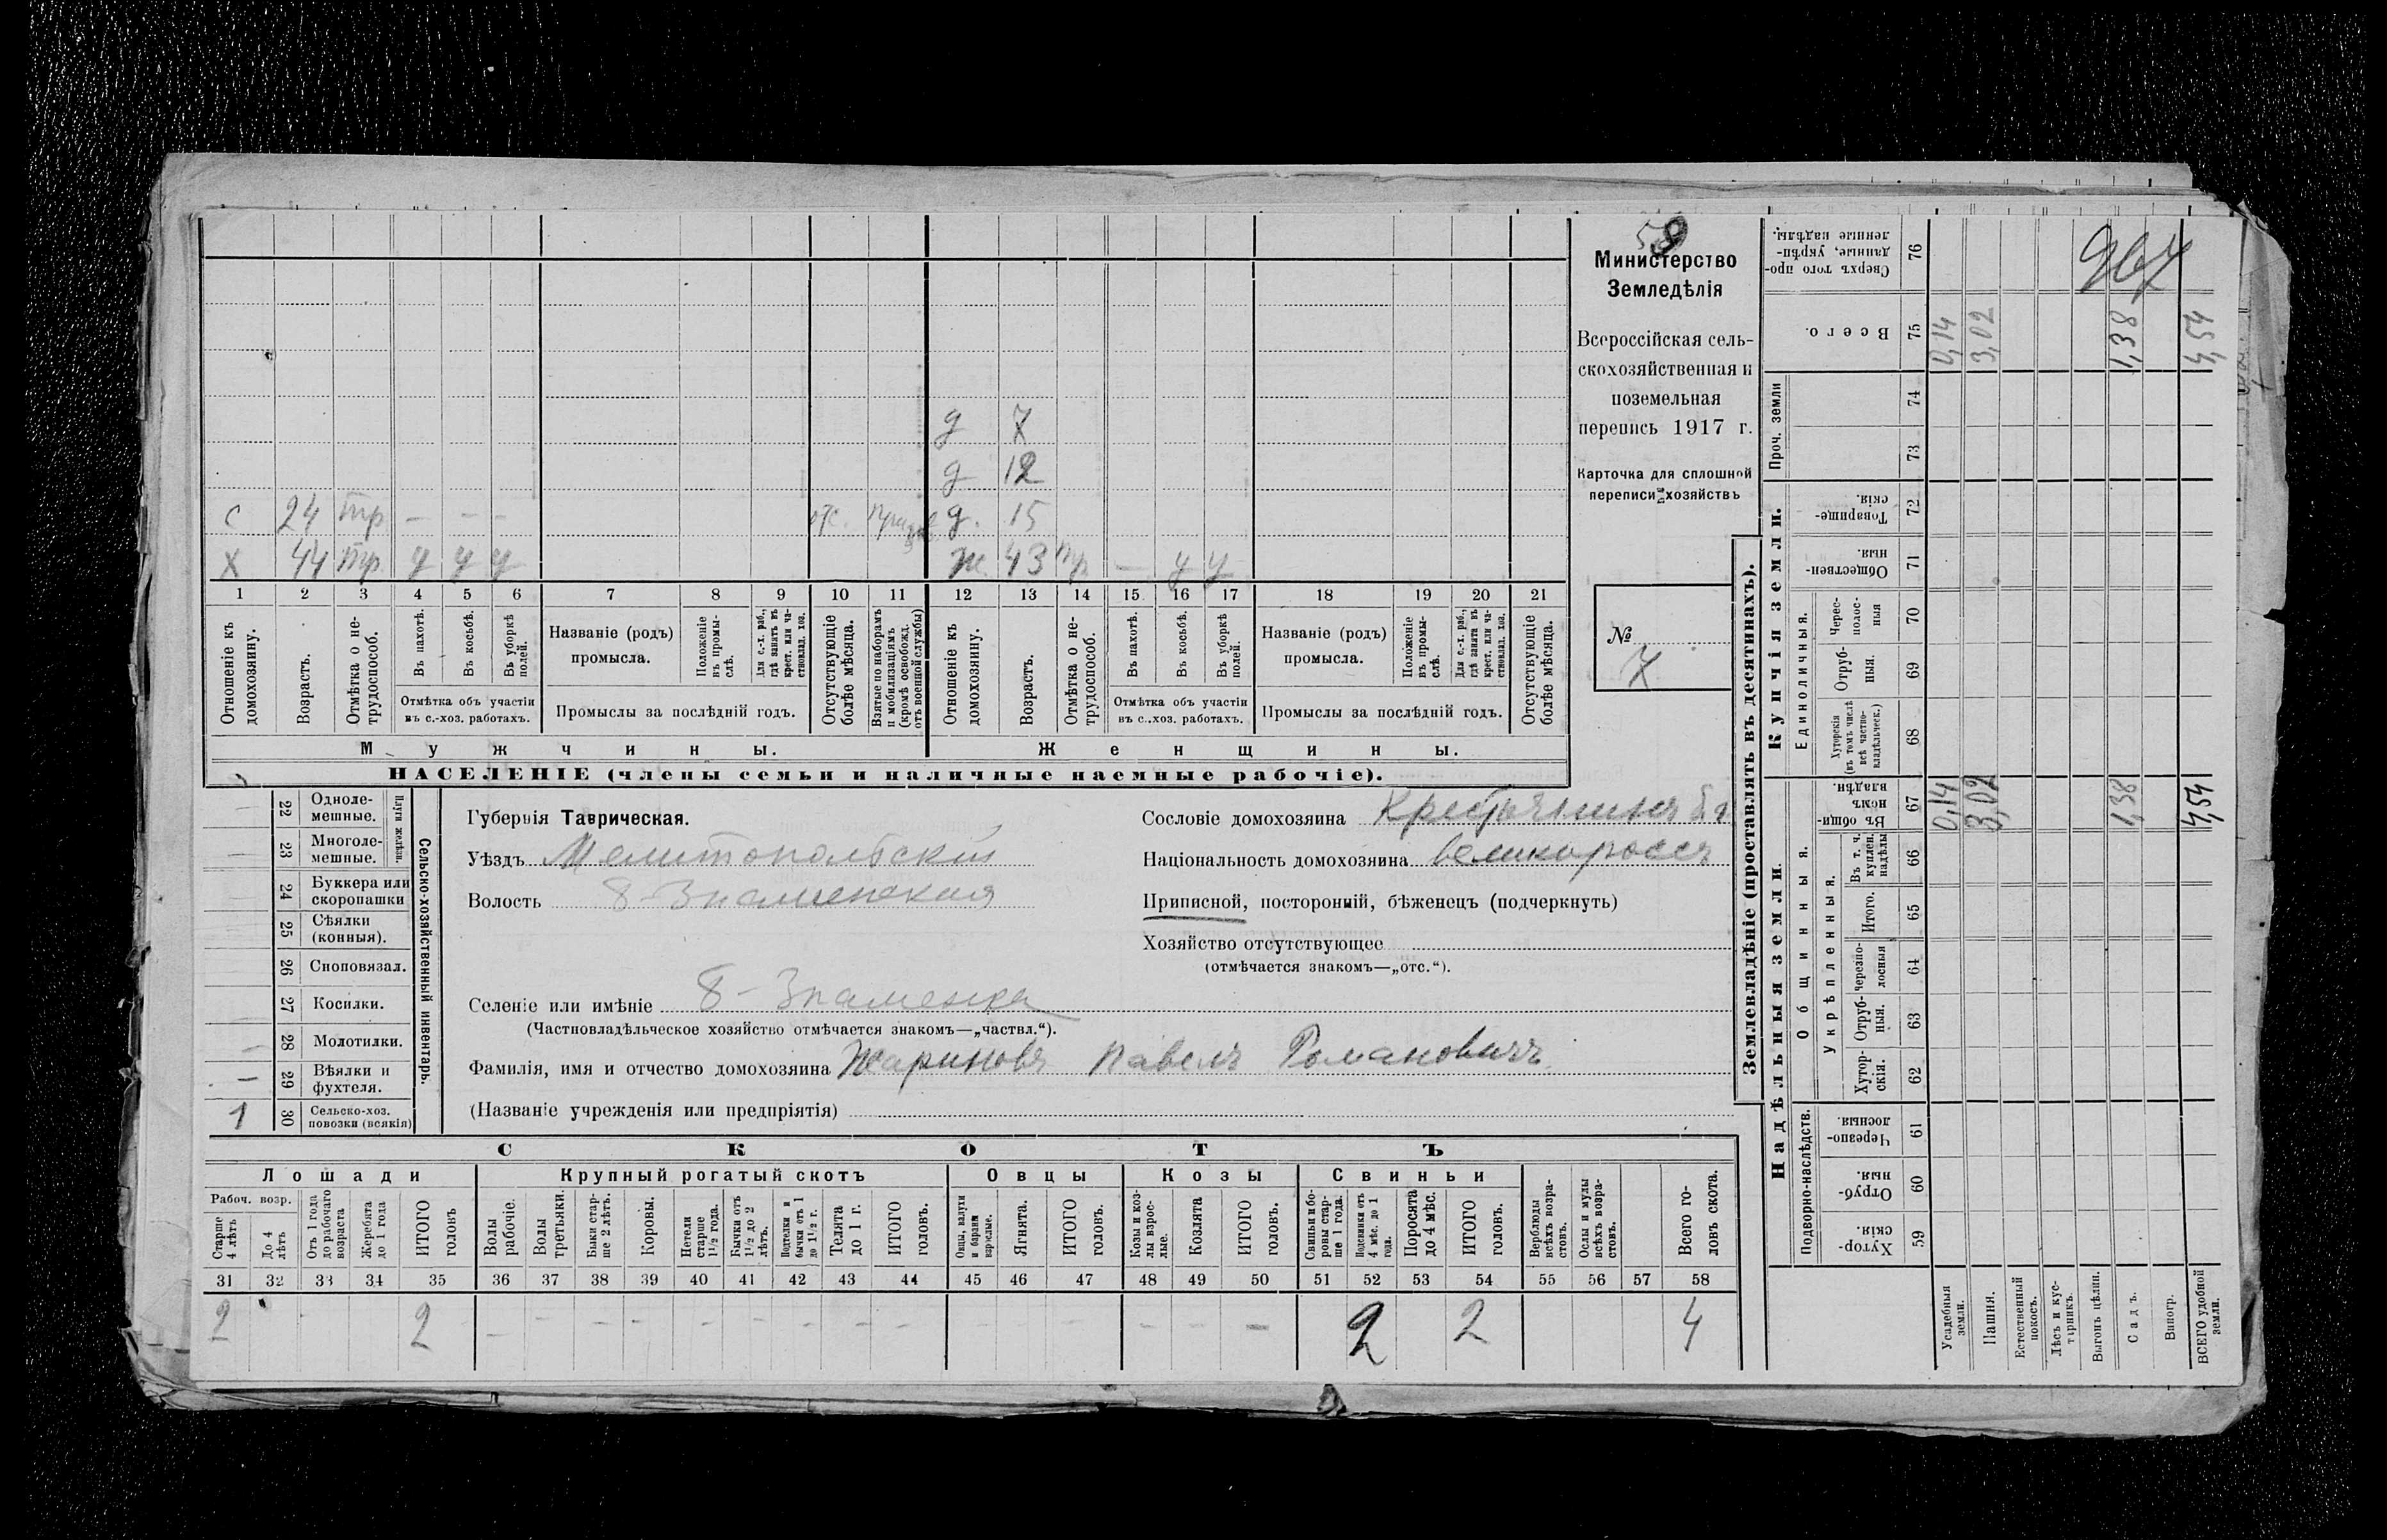 Министерство
Земледѣлія
Всероссійская сель-
скохозяйственная и
поземельная
перепись 1917 г.
Карточка для сплошной
переписи хозяйствъ
№
7
д 7
д 12
с 24 тр — — — отс. д. 15
х 44 тр у у у ж 43 тр — у у
1 2 3 4 5 6 7 8 9 10 11 12 13 14 15 16 17 18 19 20 21
Отношеніе къ домохозяину.
Возрастъ.
Отмѣтка о не-трудоспособ.
Въ пахотѣ.
Въ косьбѣ.
Въ уборкѣ полей.
Отмѣтка объ участіи
въ с.-хоз. работахъ.
Названіе (родъ)
промысла.
Положеніе въ промы-слѣ.
Для с.-х. раб., гдѣ занятъ въ крест. или ча-стновлад. хоз.
Промыслы за послѣдній годъ.
Отсутствующіе болѣе мѣсяца.
Взятые по наборамъ и мобилизаціямъ (кромѣ освобожд. отъ военной службы)
Отношеніе къ домохозяину.
Возрастъ.
Отмѣтка о не-трудоспособ.
Въ пахотѣ.
Въ косьбѣ.
Въ уборкѣ полей.
Отмѣтка объ участіи
въ с.-хоз. работахъ.
Названіе (родъ)
промысла.
Положеніе въ промы-слѣ.
Для с.-х. раб., гдѣ занята въ крест. или ча-стновлад. хоз.
Промыслы за послѣдній годъ.
Отсутствующіе болѣе мѣсяца.
Мужчины. Женщины.
НАСЕЛЕНІЕ (члены семьи и наличные наемные рабочіе).
Сельско-хозяйственный инвентарь.
Плуги желѣзн.
22 Одноле-мешные.
23 Многоле-мешные.
24 Буккера или скоропашки
25 Сѣялки (конныя).
26 Сноповязал.
27 Косилки.
28 Молотилки.
— 29 Вѣялки и фухтеля.
1 30 Сельско-хоз. повозки (всякія)
Губернія Таврическая.
Уѣздъ Мелитопольскій
Волость Б-Знаменская
Селеніе или имѣніе Б-Знаменка
(Частновладѣльческое хозяйство отмѣчается знакомъ—„частвл.“).
Фамилія, имя и отчество домохозяина Жариновъ Павелъ Романовичъ
(Названіе учрежденія или предпріятія)
Сословіе домохозяина Крестьянинъ
Національность домохозяина великороссъ
Приписной, посторонній, бѣженецъ (подчеркнуть)
Хозяйство отсутствующее
(отмѣчается знакомъ—„отс.“).
СКОТЪ
Лошади Крупный рогатый скотъ Овцы Козы Свиньи
Рабоч. возр.
Старше 4 лѣтъ
До 4 лѣтъ
Отъ 1 года до рабочаго возраста
Жеребята до 1 года
ИТОГО головъ
Волы рабочіе.
Волы третьяки.
Быки стар-ше 2 лѣтъ.
Коровы.
Нетели старше 1½ года.
Бычки отъ 1½ до 2 лѣтъ.
Подтелки и бычки отъ 1 до 1½ г.
Телята до 1 г.
ИТОГО головъ.
Овцы, валухи и бараны взрослые.
Ягнята.
ИТОГО головъ.
Козы и коз-лы взрос-лые.
Козлята
ИТОГО головъ.
Свиньи и бо-ровы стар-ше 1 года.
Подсвинки отъ 4 мѣс. до 1 года.
Поросята до 4 мѣс.
ИТОГО головъ.
Верблюды всѣхъ возра-стовъ.
Ослы и мулы всѣхъ возра-стовъ.
Всего го-ловъ скота.
31 32 33 34 35 36 37 38 39 40 41 42 43 44 45 46 47 48 49 50 51 52 53 54 55 56 57 58
2 2 — — — — — — — — — — — — 2 2 4
Землевладѣніе (проставлять въ десятинахъ).
Надѣльныя земли.
Купчія земли.
Проч. земли
Подворно-наслѣдств.
Общинныя.
Укрѣпленныя.
Единоличныя.
Хутор-скія. 59
Отруб-ныя. 60
Черезпо-лосныя. 61
Хутор-скія. 62
Отруб-ныя. 63
черезпо-лосныя 64
Итого. 65
Въ т. ч. куплен. надѣлы 66
Въ общин-номъ владѣн. 67
Хуторскія (въ томъ числѣ всѣ частно-владѣльческ.) 68
Отруб-ныя. 69
Черес-полос-ныя 70
Обществен-ныя. 71
Товарище-скія. 72
73
74
Всего. 75
Сверхъ того про-данные, укрѣп-ленные надѣлы. 76
Усадебныя земли. 0,14 0,14
Пашня. 3,02 3,02
Естественный покосъ.
Лѣсъ и кус-тарникъ.
Выгонъ цѣлин.
Садъ. 1,38 1,38
Виногр.
ВСЕГО удобной земли. 4,54 4,54